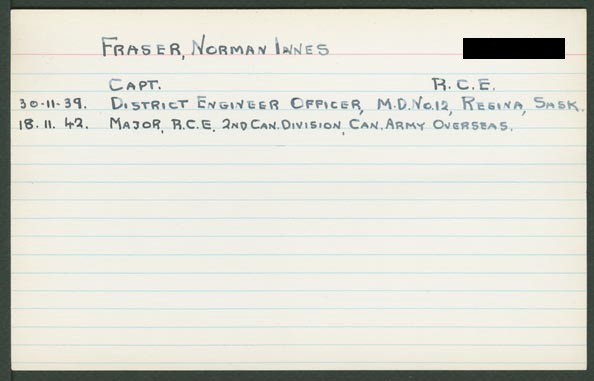 FRASER, NORMAN INNES
CAPT. R.C.E.
30-11-39. DISTRICT ENGINEER OFFICER, M.D. NO.12, REGINA, SASK.
18.11.42. MAJOR, R.C.E. 2ND CAN. DIVISION, CAN. ARMY OVERSEAS.